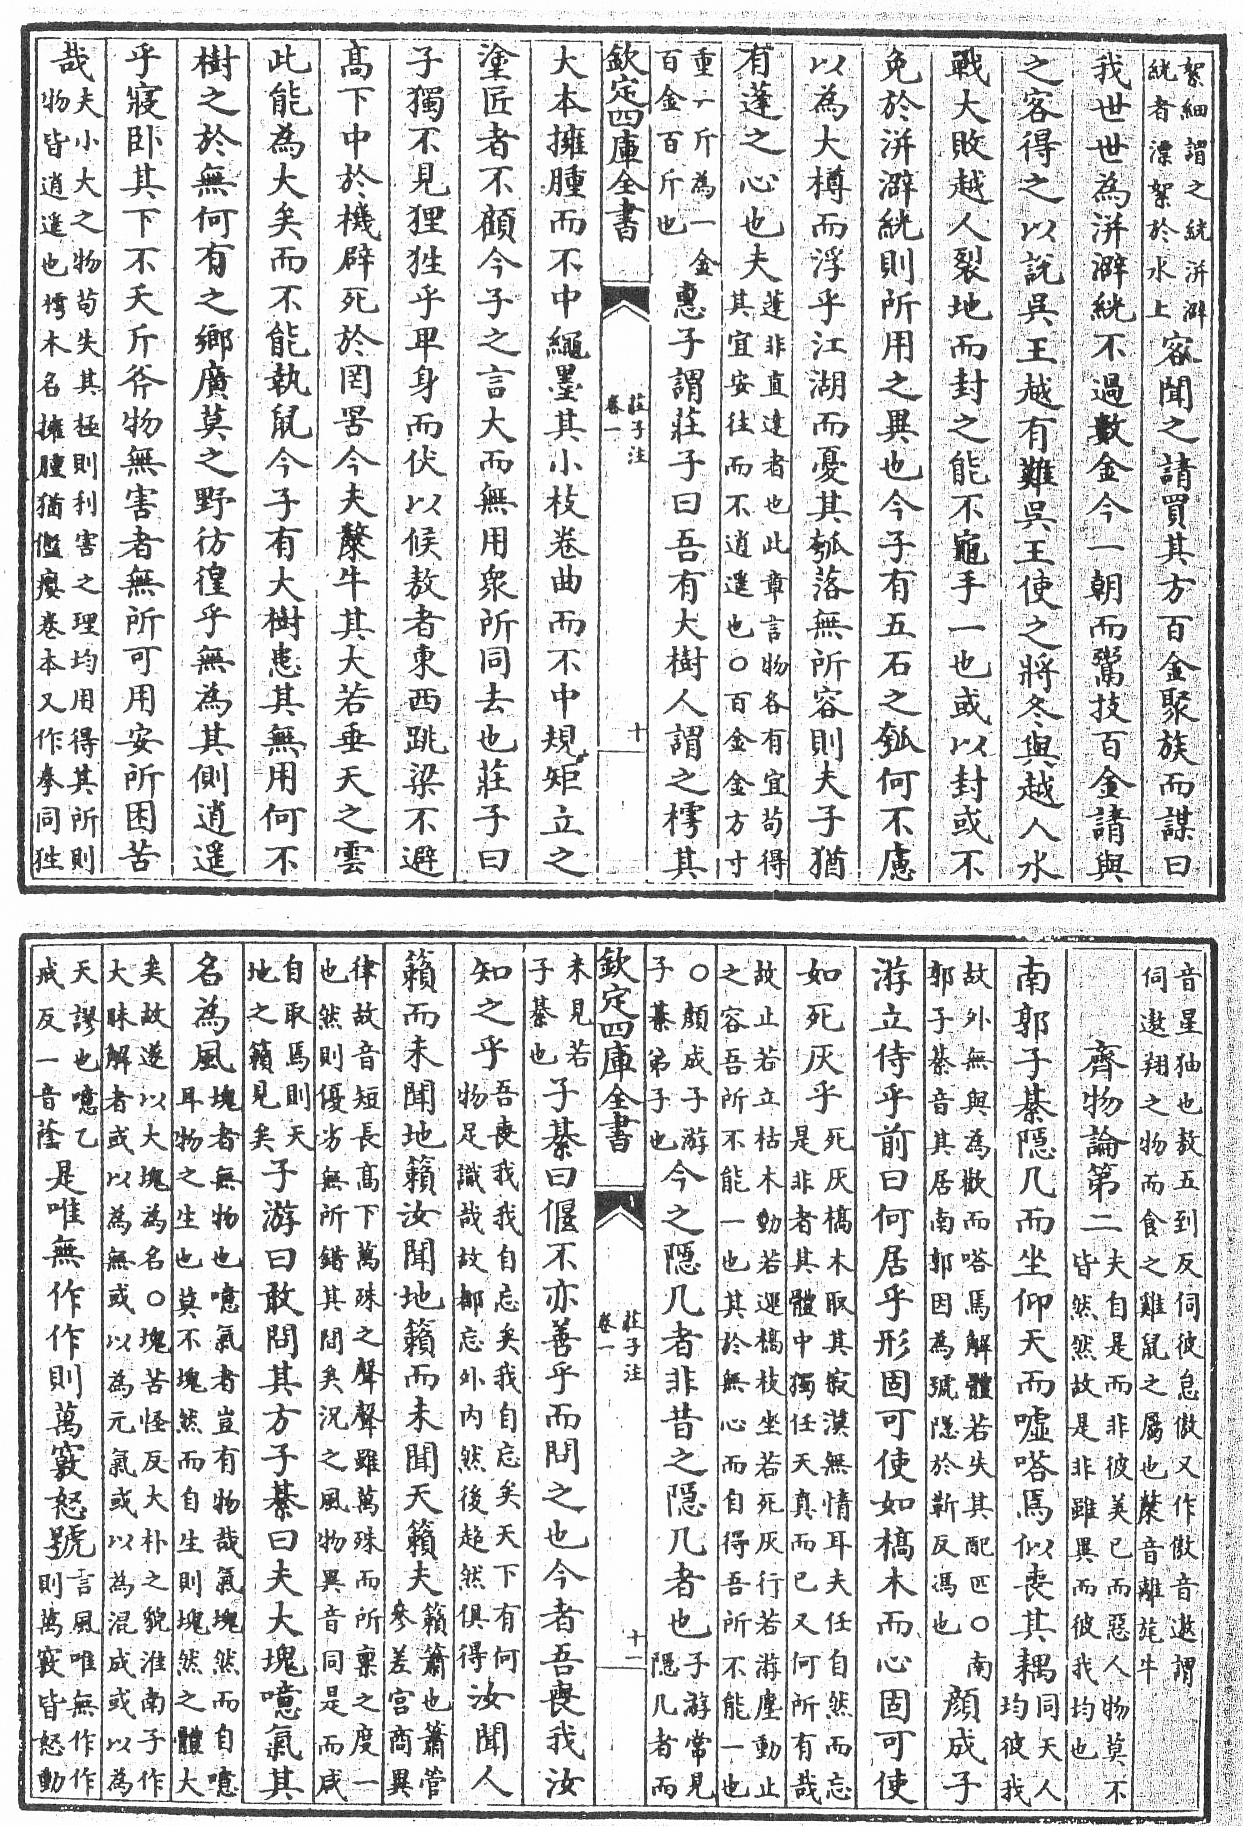 絮細謂之絖洴澼
絖者漂絮於水上客聞之請買其方百金聚族而謀曰
我世世為洴澼絖不過數金今一朝而鬻技百金請與
之客得之以說吳王越有難吳王使之將冬與越人水
戰大敗越人裂地而封之能不龜手一也或以封或不
免於洴澼絖則所用之異也今子有五石之瓠何不慮
以為大樽而浮乎江湖而憂其瓠落無所容則夫子猶
有蓬之心也夫蓬非直達者也此章言物各有宜苟得
其宜安往而不逍遥也○百金金方寸
重一斤為一金
百金百斤也惠子謂莊子曰吾有大樹人謂之樗其
欽定四庫全書
莊子注
卷一
十
大本擁腫而不中繩墨其小枝卷曲而不中規矩立之
塗匠者不顧今子之言大而無用衆所同去也莊子曰
子獨不見狸狌乎卑身而伏以候敖者東西跳梁不避
高下中於機辟死於罔罟今夫斄牛其大若垂天之雲
此能為大矣而不能執鼠今子有大樹患其無用何不
樹之於無何有之鄉廣莫之野彷徨乎無為其側逍遥
乎寢卧其下不夭斤斧物無害者無所可用安所困苦
哉夫小大之物苟失其極則利害之理均用得其所則
物皆逍遥也樗木名擁腫猶傀癭卷本又作拳同狌
音星㹨也敖五到反伺彼怠傲又作傲音遨謂
伺遨翔之物而食之雞鼠之屬也斄音離旄牛
齊物論第二夫自是而非彼美已而惡人物莫不
皆然然故是非雖異而彼我均也
南郭子綦隱几而坐仰天而噓嗒焉似喪其耦同天人
均彼我
故外無與為歡而嗒焉解體若失其配匹○南
郭子綦音其居南郭因為號隱於靳反馮也顔成子
游立侍乎前曰何居乎形固可使如槁木而心固可使
如死灰乎死灰槁木取其寂漠無情耳夫任自然而忘
是非者其體中獨任天真而已又何所有哉
故止若立枯木動若運槁枝坐若死灰行若游塵動止
之容吾所不能一也其於無心而自得吾所不能一也
○顔成子游
子綦弟子也今之隱几者非昔之隱几者也子游常見
隱几者而
欽定四庫全書
莊子注
卷一
十一
未見若
子綦也子綦曰偃不亦善乎而問之也今者吾喪我汝
知之乎吾喪我我自忘矣我自忘矣天下有何
物足識哉故都忘外内然後超然俱得汝聞人
籟而未聞地籟汝聞地籟而未聞天籟夫籟簫也簫管
參差宫商異
律故音短長高下萬殊之聲聲雖萬殊而所稟之度一
也然則優劣無所錯其間矣況之風物異音同是而咸
自取焉則天
地之籟見矣子游曰敢問其方子綦曰夫大塊噫氣其
名為風塊者無物也噫氣者豈有物哉氣塊然而自噫
耳物之生也莫不塊然而自生則塊然之體大
矣故遂以大塊為名○塊苦怪反大朴之貌淮南子作
大昧解者或以為無或以為元氣或以為混成或以為
天謬也噫乙
戒反一音蔭是唯無作作則萬竅怒號言風唯無作作
則萬竅皆怒動